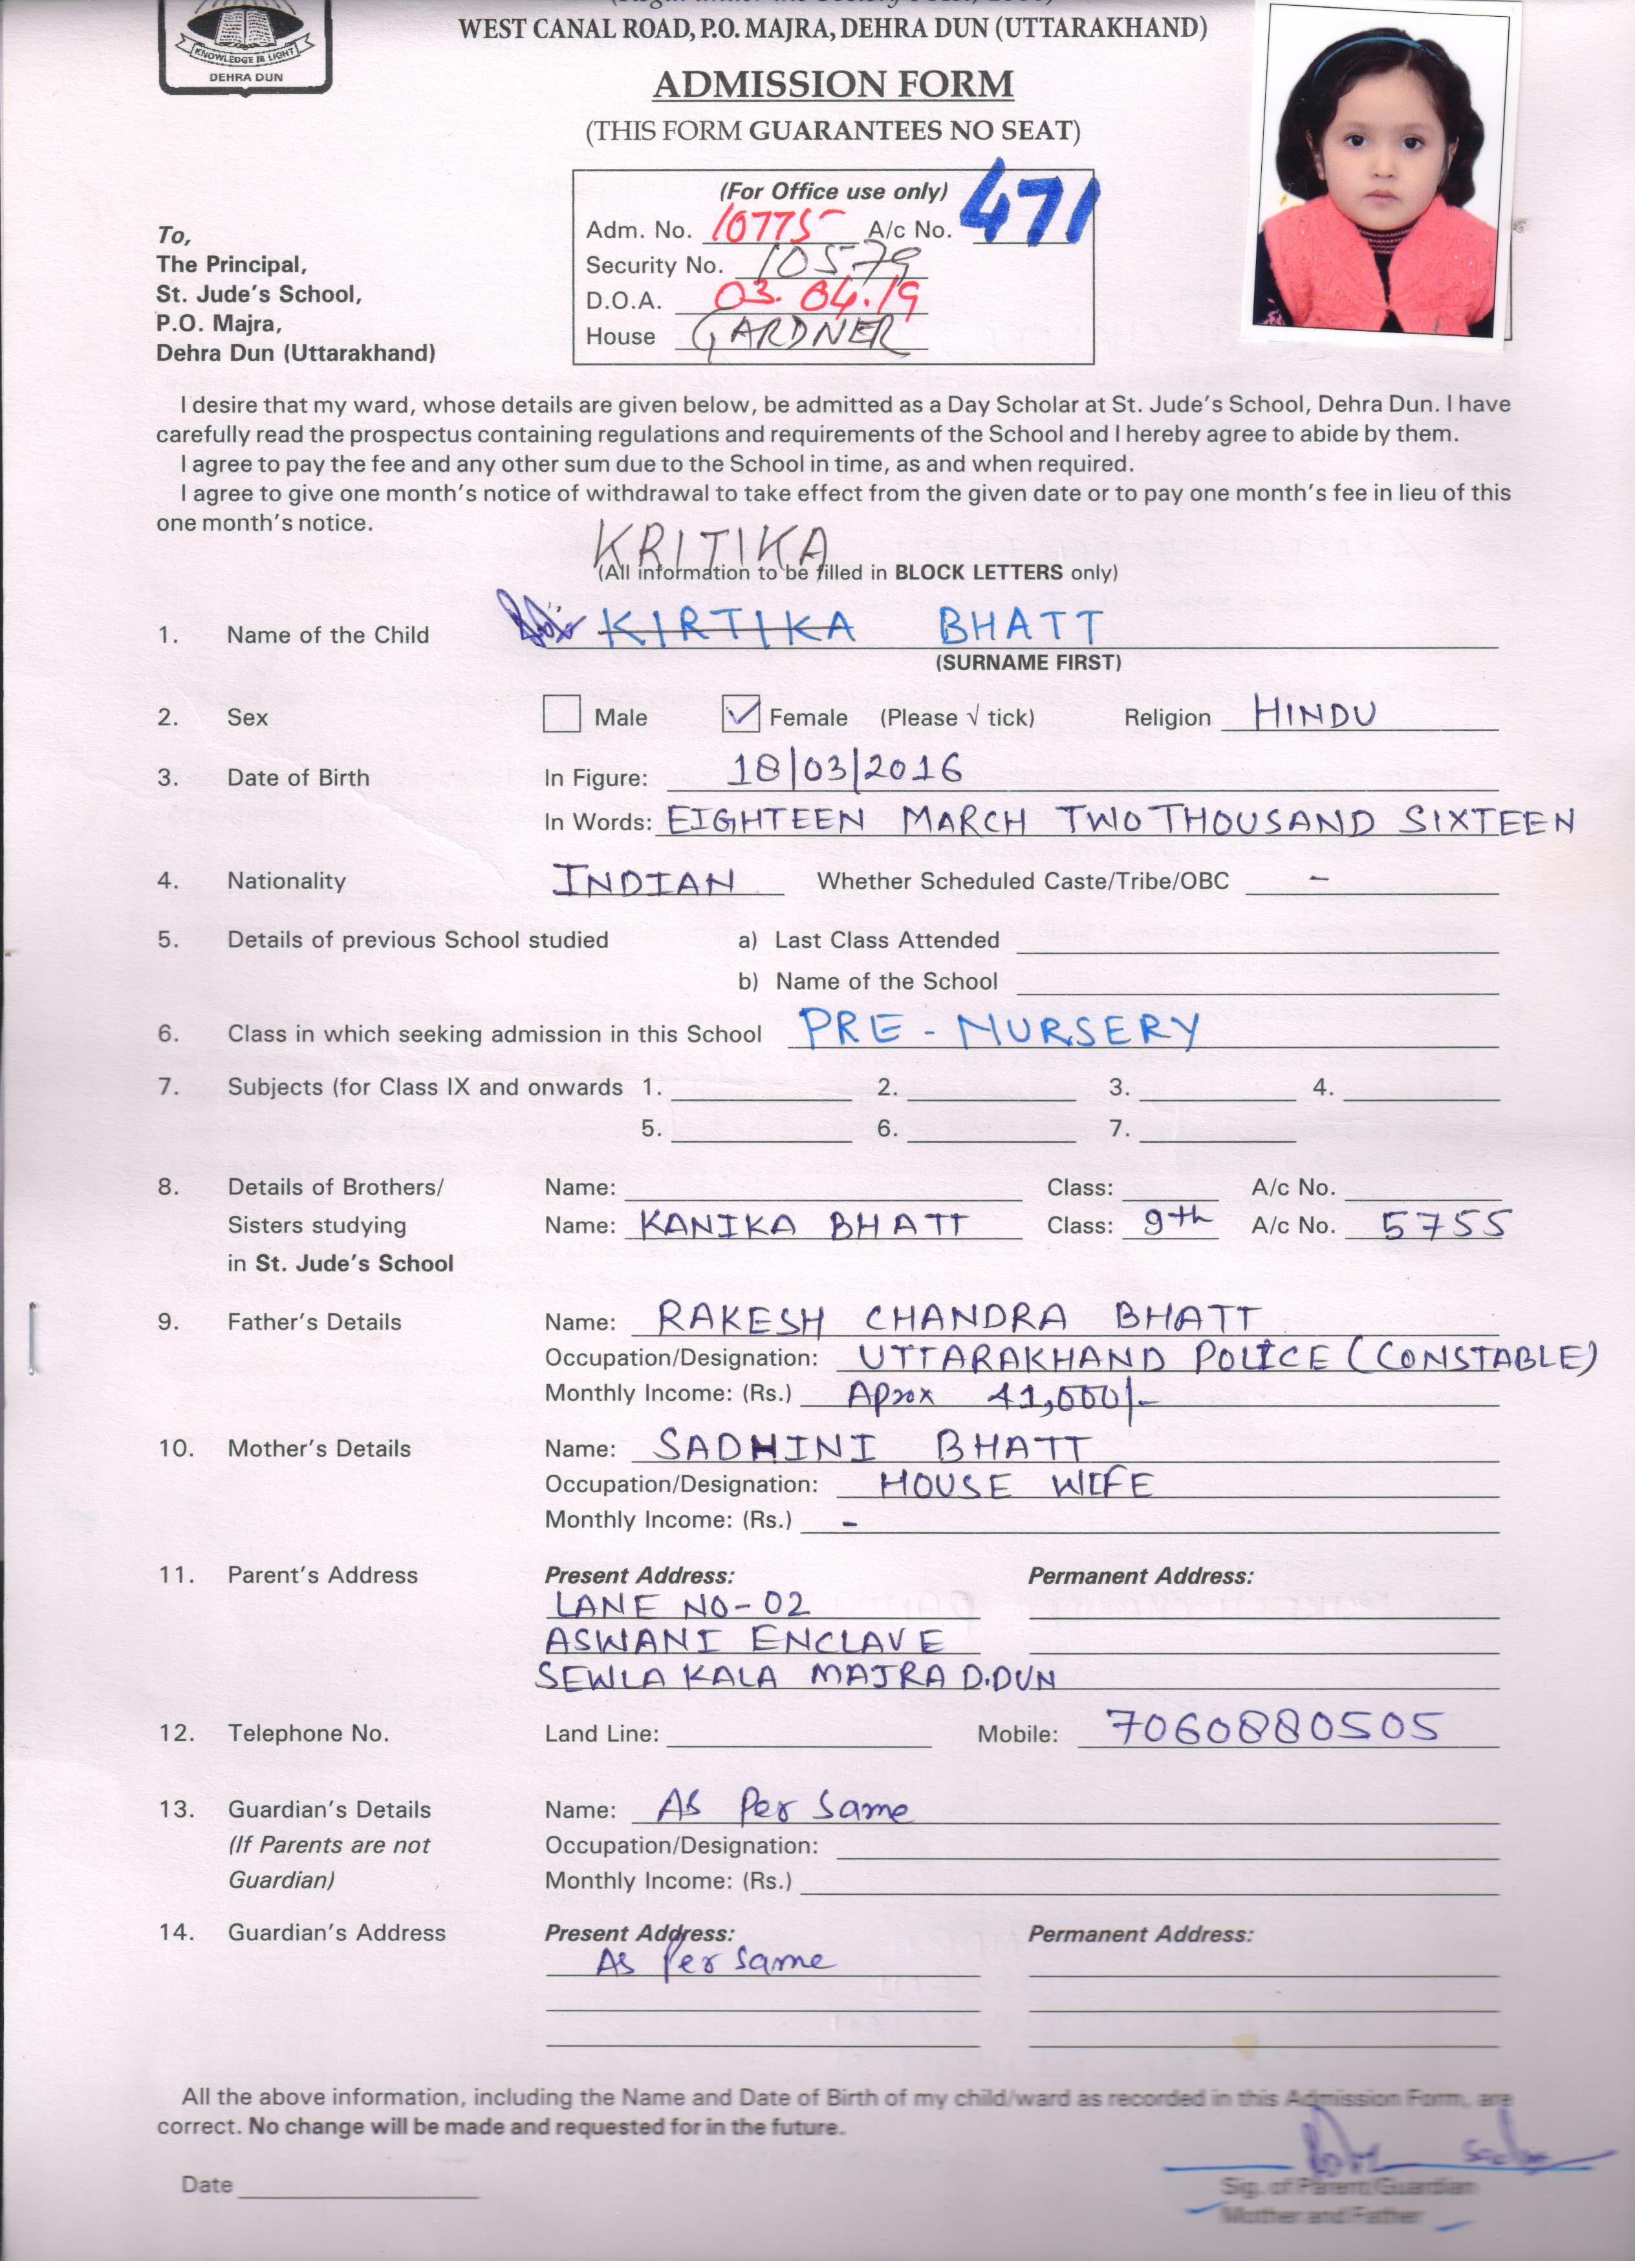 KNOWLEDGE IS LIGHT
DEHRA DUN
WEST CANAL ROAD, P.O. MAJRA, DEHRA DUN (UTTARAKHAND)
ADMISSION FORM
(THIS FORM GUARANTEES NO SEAT)
(For Office use only)
Adm. No. 10775 A/c No. 471
Security No. 10579
D.O.A. 03.04.19
House GARDNER
To,
The Principal,
St. Jude's School,
P.O. Majra,
Dehra Dun (Uttarakhand)
I desire that my ward, whose details are given below, be admitted as a Day Scholar at St. Jude's School, Dehra Dun. I have
carefully read the prospectus containing regulations and requirements of the School and I hereby agree to abide by them.
I agree to pay the fee and any other sum due to the School in time, as and when required.
I agree to give one month's notice of withdrawal to take effect from the given date or to pay one month's fee in lieu of this
one month's notice.
KRITIKA
(All information to be filled in BLOCK LETTERS only)
1. Name of the Child KIRTIKA BHATT
(SURNAME FIRST)
2. Sex Male Female (Please √ tick) Religion HINDU
3. Date of Birth In Figure: 18/03/2016
In Words: EIGHTEEN MARCH TWO THOUSAND SIXTEEN
4. Nationality INDIAN Whether Scheduled Caste/Tribe/OBC -
5. Details of previous School studied a) Last Class Attended
b) Name of the School
6. Class in which seeking admission in this School PRE - NURSERY
7. Subjects (for Class IX and onwards 1. 2. 3. 4.
5. 6. 7.
8. Details of Brothers/ Name: Class: A/c No.
Sisters studying Name: KANIKA BHATT Class: 9th A/c No. 5755
in St. Jude's School
9. Father's Details Name: RAKESH CHANDRA BHATT
Occupation/Designation: UTTARAKHAND POLICE (CONSTABLE)
Monthly Income: (Rs.) Aprox 41,000/-
10. Mother's Details Name: SADHINI BHATT
Occupation/Designation: HOUSE WIFE
Monthly Income: (Rs.) -
11. Parent's Address Present Address: Permanent Address:
LANE NO-02
ASWANI ENCLAVE
SEWLA KALA MAJRA D.DUN
12. Telephone No. Land Line: Mobile: 7060880505
13. Guardian's Details Name: As Per Same
(If Parents are not Occupation/Designation:
Guardian) Monthly Income: (Rs.)
14. Guardian's Address Present Address: Permanent Address:
As Per Same
All the above information, including the Name and Date of Birth of my child/ward as recorded in this Admission Form, are
correct. No change will be made and requested for in the future.
Date
Sig. of Parent/Guardian
Mother and Father